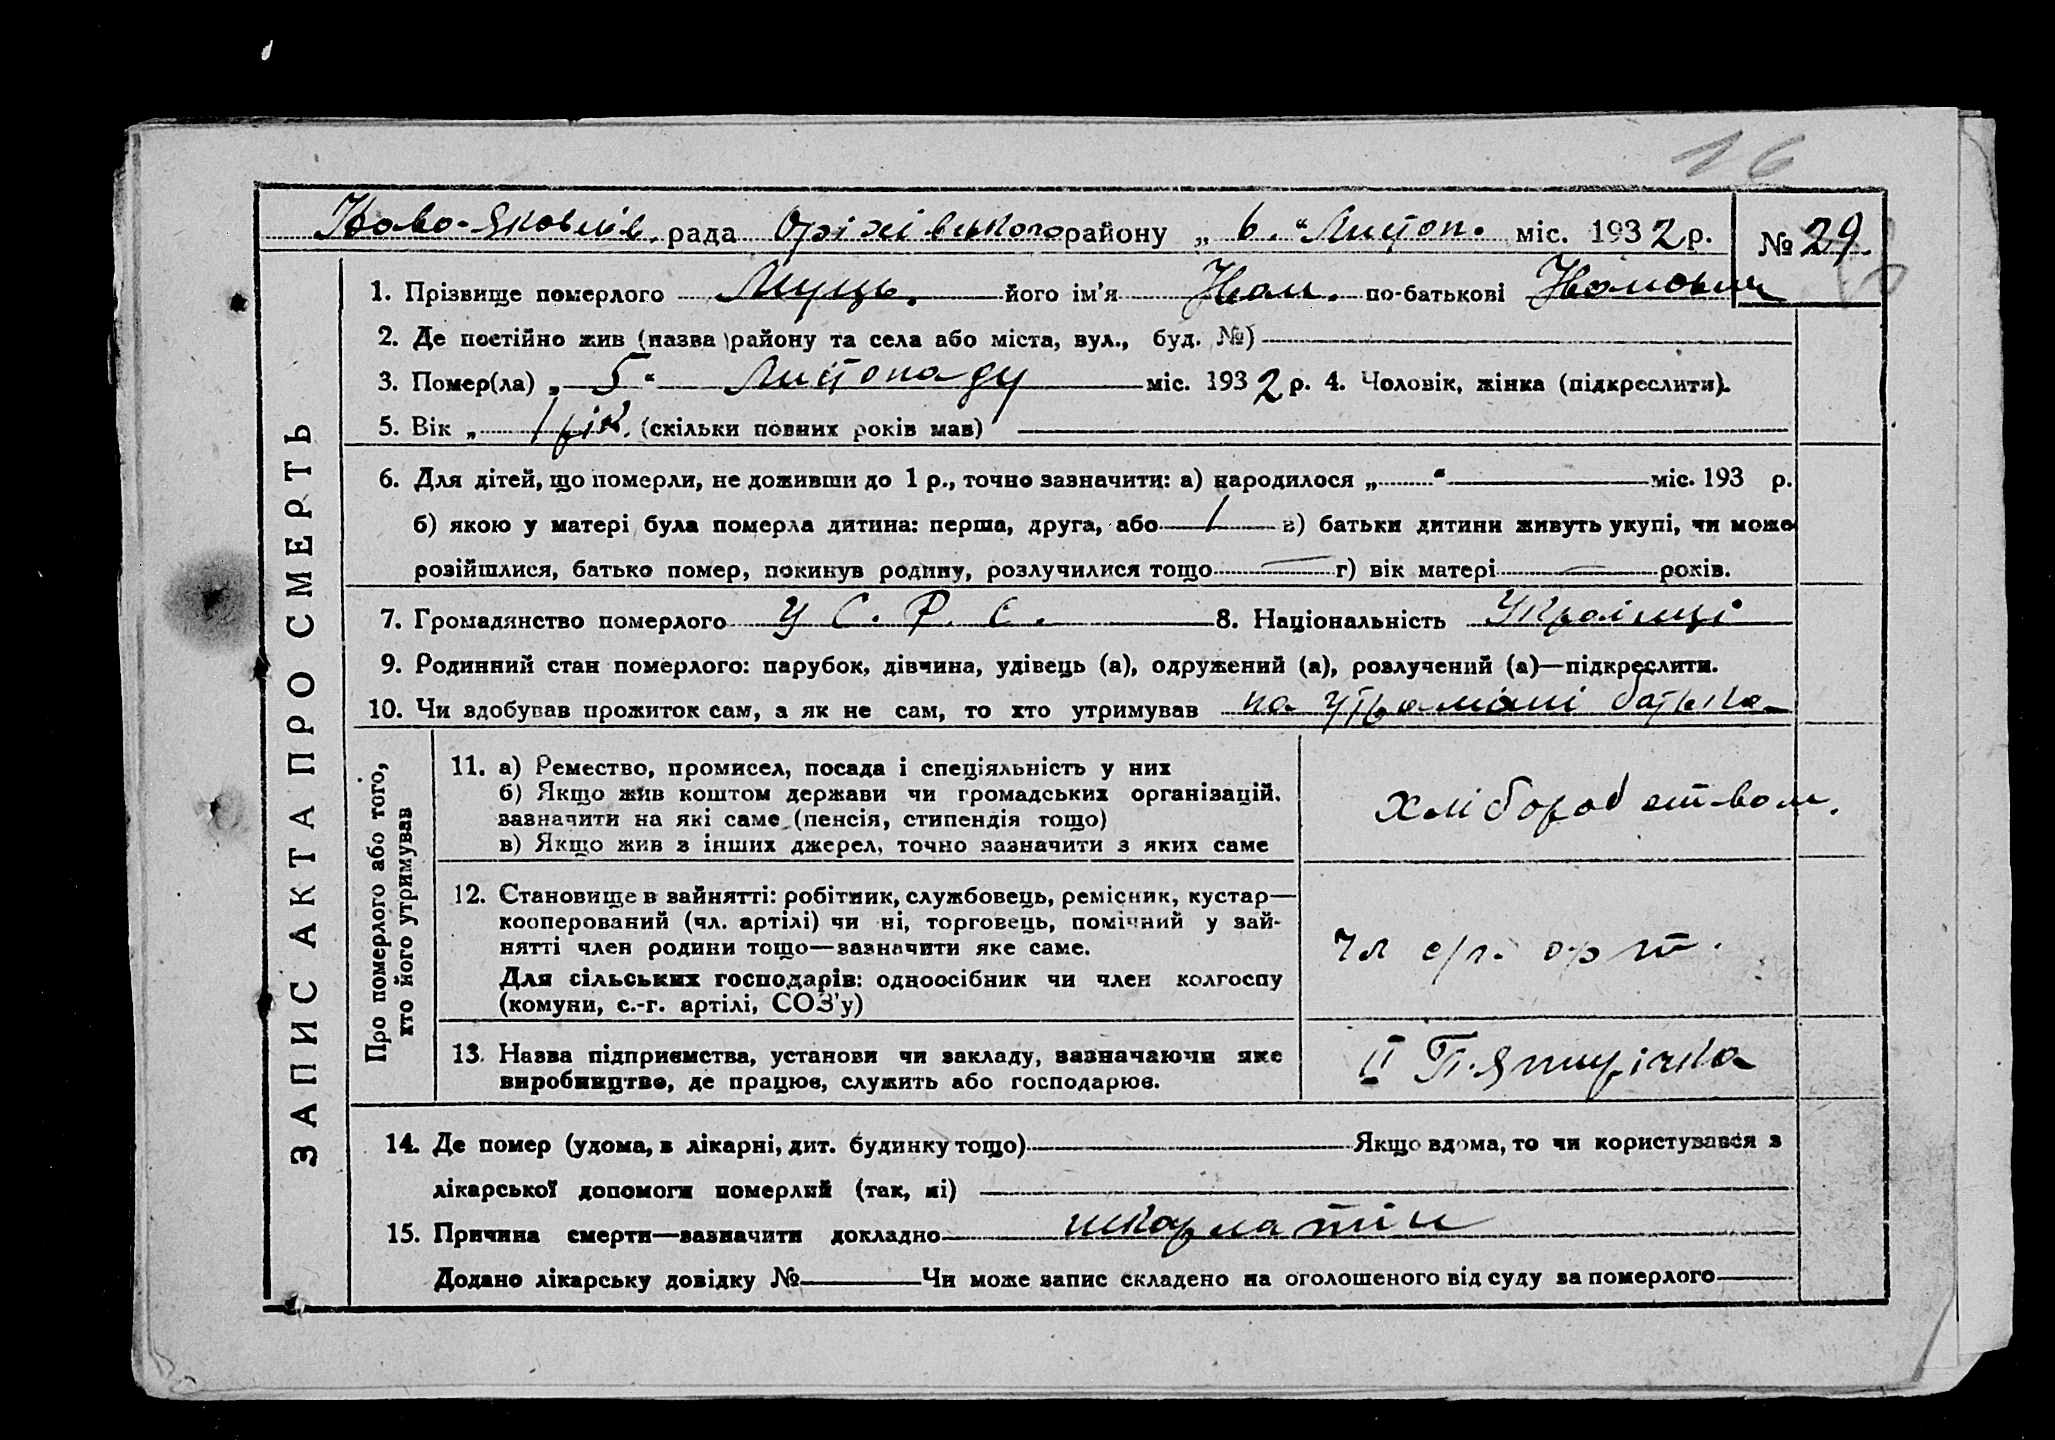 16
Ново-Яковлів. рада Оріхівського району „ 6. “ Листоп. міс. 1932 р. № 29.
1. Прізвище померлого Муць. його ім'я Іван. по-батькові Іванович
2. Де постійно жив (назва району та села або міста, вул., буд. №)
3. Помер(ла) „ 5 “ Листопаду міс. 1932 р. 4. Чоловік, жінка (підкреслити).
5. Вік „ 1 рік. (скільки повних років мав)
6. Для дітей, що померли, не доживши до 1 р., точно зазначити: а) народилося „ “ міс. 193 р.
б) якою у матері була померла дитина: перша, друга, або 1 в) батьки дитини живуть укупі, чи може
розійшлися, батько помер, покинув родину, розлучилися тощо г) вік матері років.
7. Громадянство померлого У С. Р. С. 8. Національність Українці
9. Родинний стан померлого: парубок, дівчина, удівець (а), одружений (а), розлучений (а)—підкреслити.
10. Чи здобував прожиток сам, а як не сам, то хто утримував на утримані батька
ЗАПИС АКТА ПРО СМЕРТЬ
Про померлого або того,
хто його утримував
11. а) Ремество, промисел, посада і спеціяльність у них
б) Якщо жив коштом держави чи громадських організацій,
зазначити на які саме (пенсія, стипендія тощо)
в) Якщо жив з інших джерел, точно зазначити з яких саме
хліборобством.
12. Становище в зайнятті: робітник, службовець, ремісник, кустар—
кооперований (чл. артілі) чи ні, торговець, помічний у зай-
нятті член родини тощо—зазначити яке саме.
Для сільських господарів: одноосібник чи член колгоспу
(комуни, с.-г. артілі, СОЗ'у)
чл с/г. арт.
13. Назва підприємства, установи чи закладу, зазначаючи яке
виробництво, де працює, служить або господарює.
II П.Ятирічка
14. Де помер (удома, в лікарні, дит. будинку тощо) Якщо вдома, то чи користувався з
лікарської допомоги померлий (так, ні)
15. Причина смерти—зазначити докладно шкарлатін
Додано лікарську довідку № Чи може запис складено на оголошеного від суду за померлого